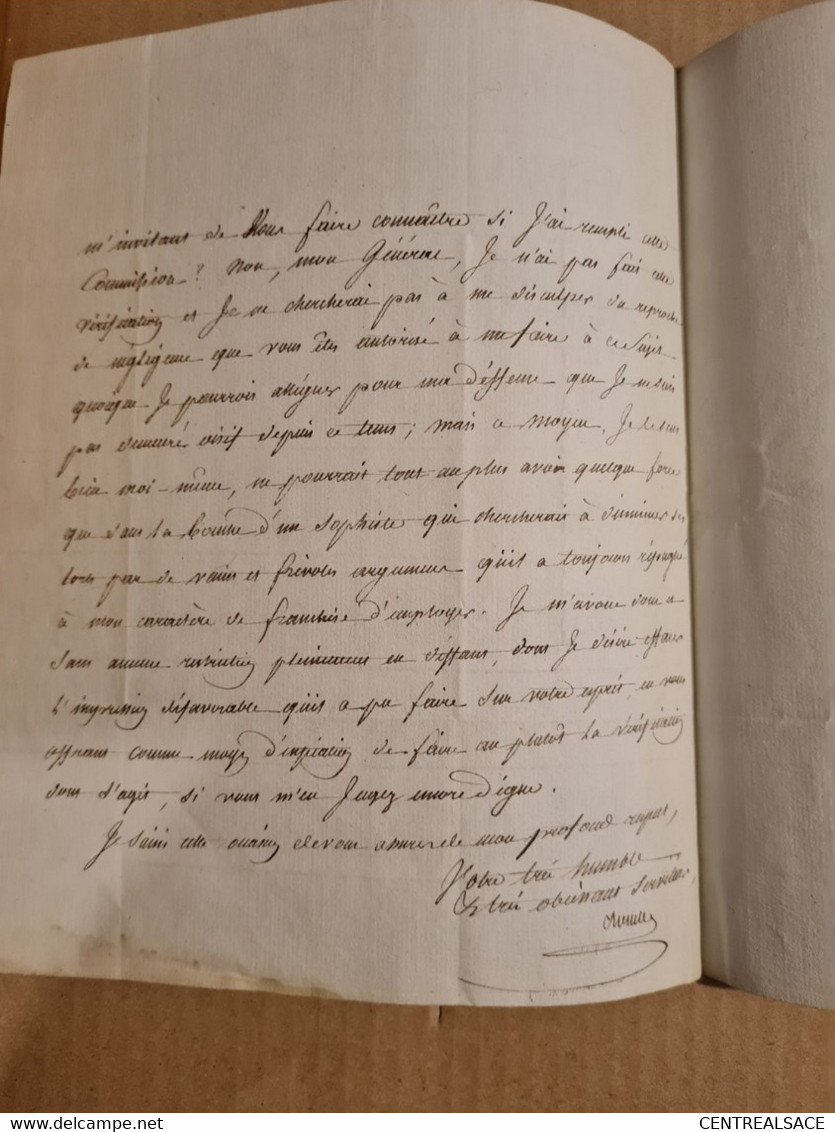 m'invitant de Vous faire connaître si J'ai rempli cette
Commission? Non, mon Général, Je n'ai pas fait cette
vérification et Je ne chercherai pas à me disculper du reproche
de négligence que vous êtes autorisé à me faire à ce Sujet
quoique Je pourrois alléguer pour ma déffense que Je ne suis
pas demeuré oisif depuis ce tems; mais ce moyen, Je le sens
bien moi-même, ne pourrait tout au plus avoir quelque force
que dans la bouche d'un Sophiste qui chercherait à diminuer ses
torts par de vains et frivoles argumens qu'il a toujours répugné
à mon caractère de franchise d'employer. Je m'avoue donc
sans aucune restriction pleinement en déffaut, dont Je désire effacer
l'impression défavorable qu'il a pu faire sur votre esprit, en vous
offrant comme moyen d'expiation de faire au plutôt la vérification
dont s'agit, si vous m'en Jugez encore digne.
Je saisis cette occasion de vous assurer de mon profond respect,
Votre très humble
Et très obéissant Serviteur,
CENTREALSACE